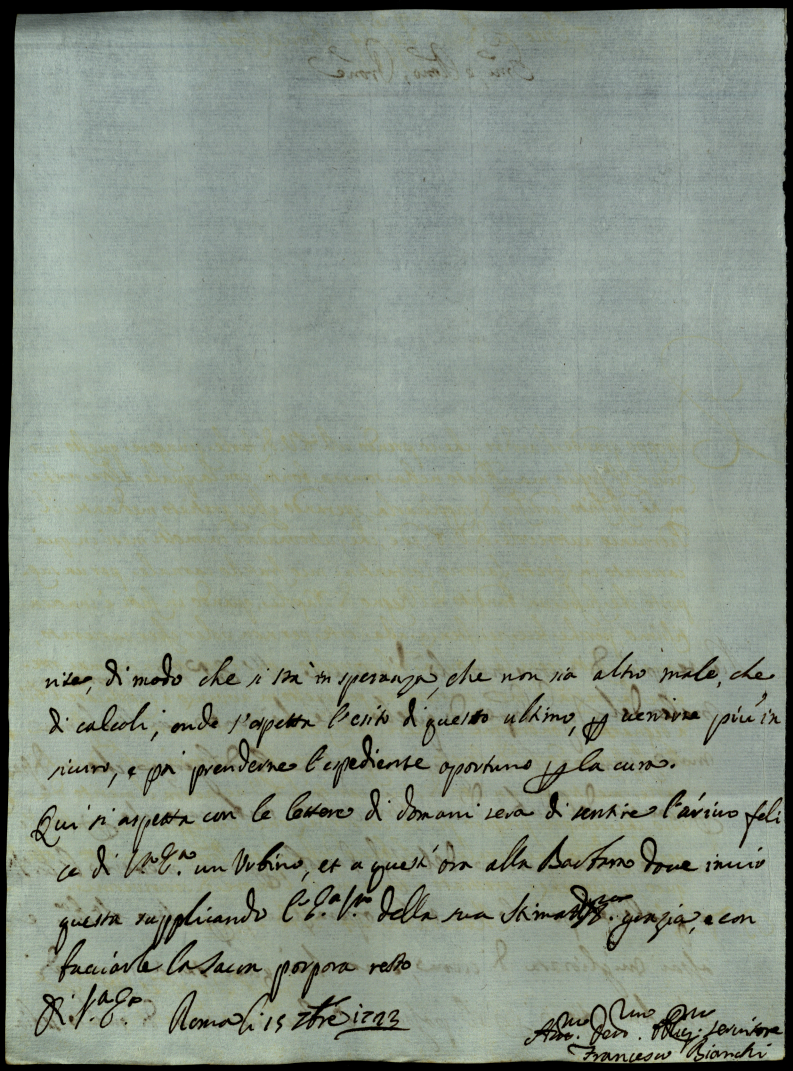 rire, di modo che si stà in speranza, che non sia altro male, che
di calcoli, onde s'aspetta l'esito di questo ultimo, p venirne più in
sicuro, e poi prenderne l'espediente oportuno p la cura.
Qui si aspetta con le lettere di domani sera di sentire l'arivo feli
ce di V.ra E.za un Urbino, et a quest'ora alla dove invio
questa supplicando l'E.za V.ra della sua stimatiss.ma grazia, e con
bacciarle la sacra porpora resto
Di V.ra E.za Roma li 15 7bre 1723
Um.mo Dev.mo Oblig.mo servitore
Francesco Bianchi